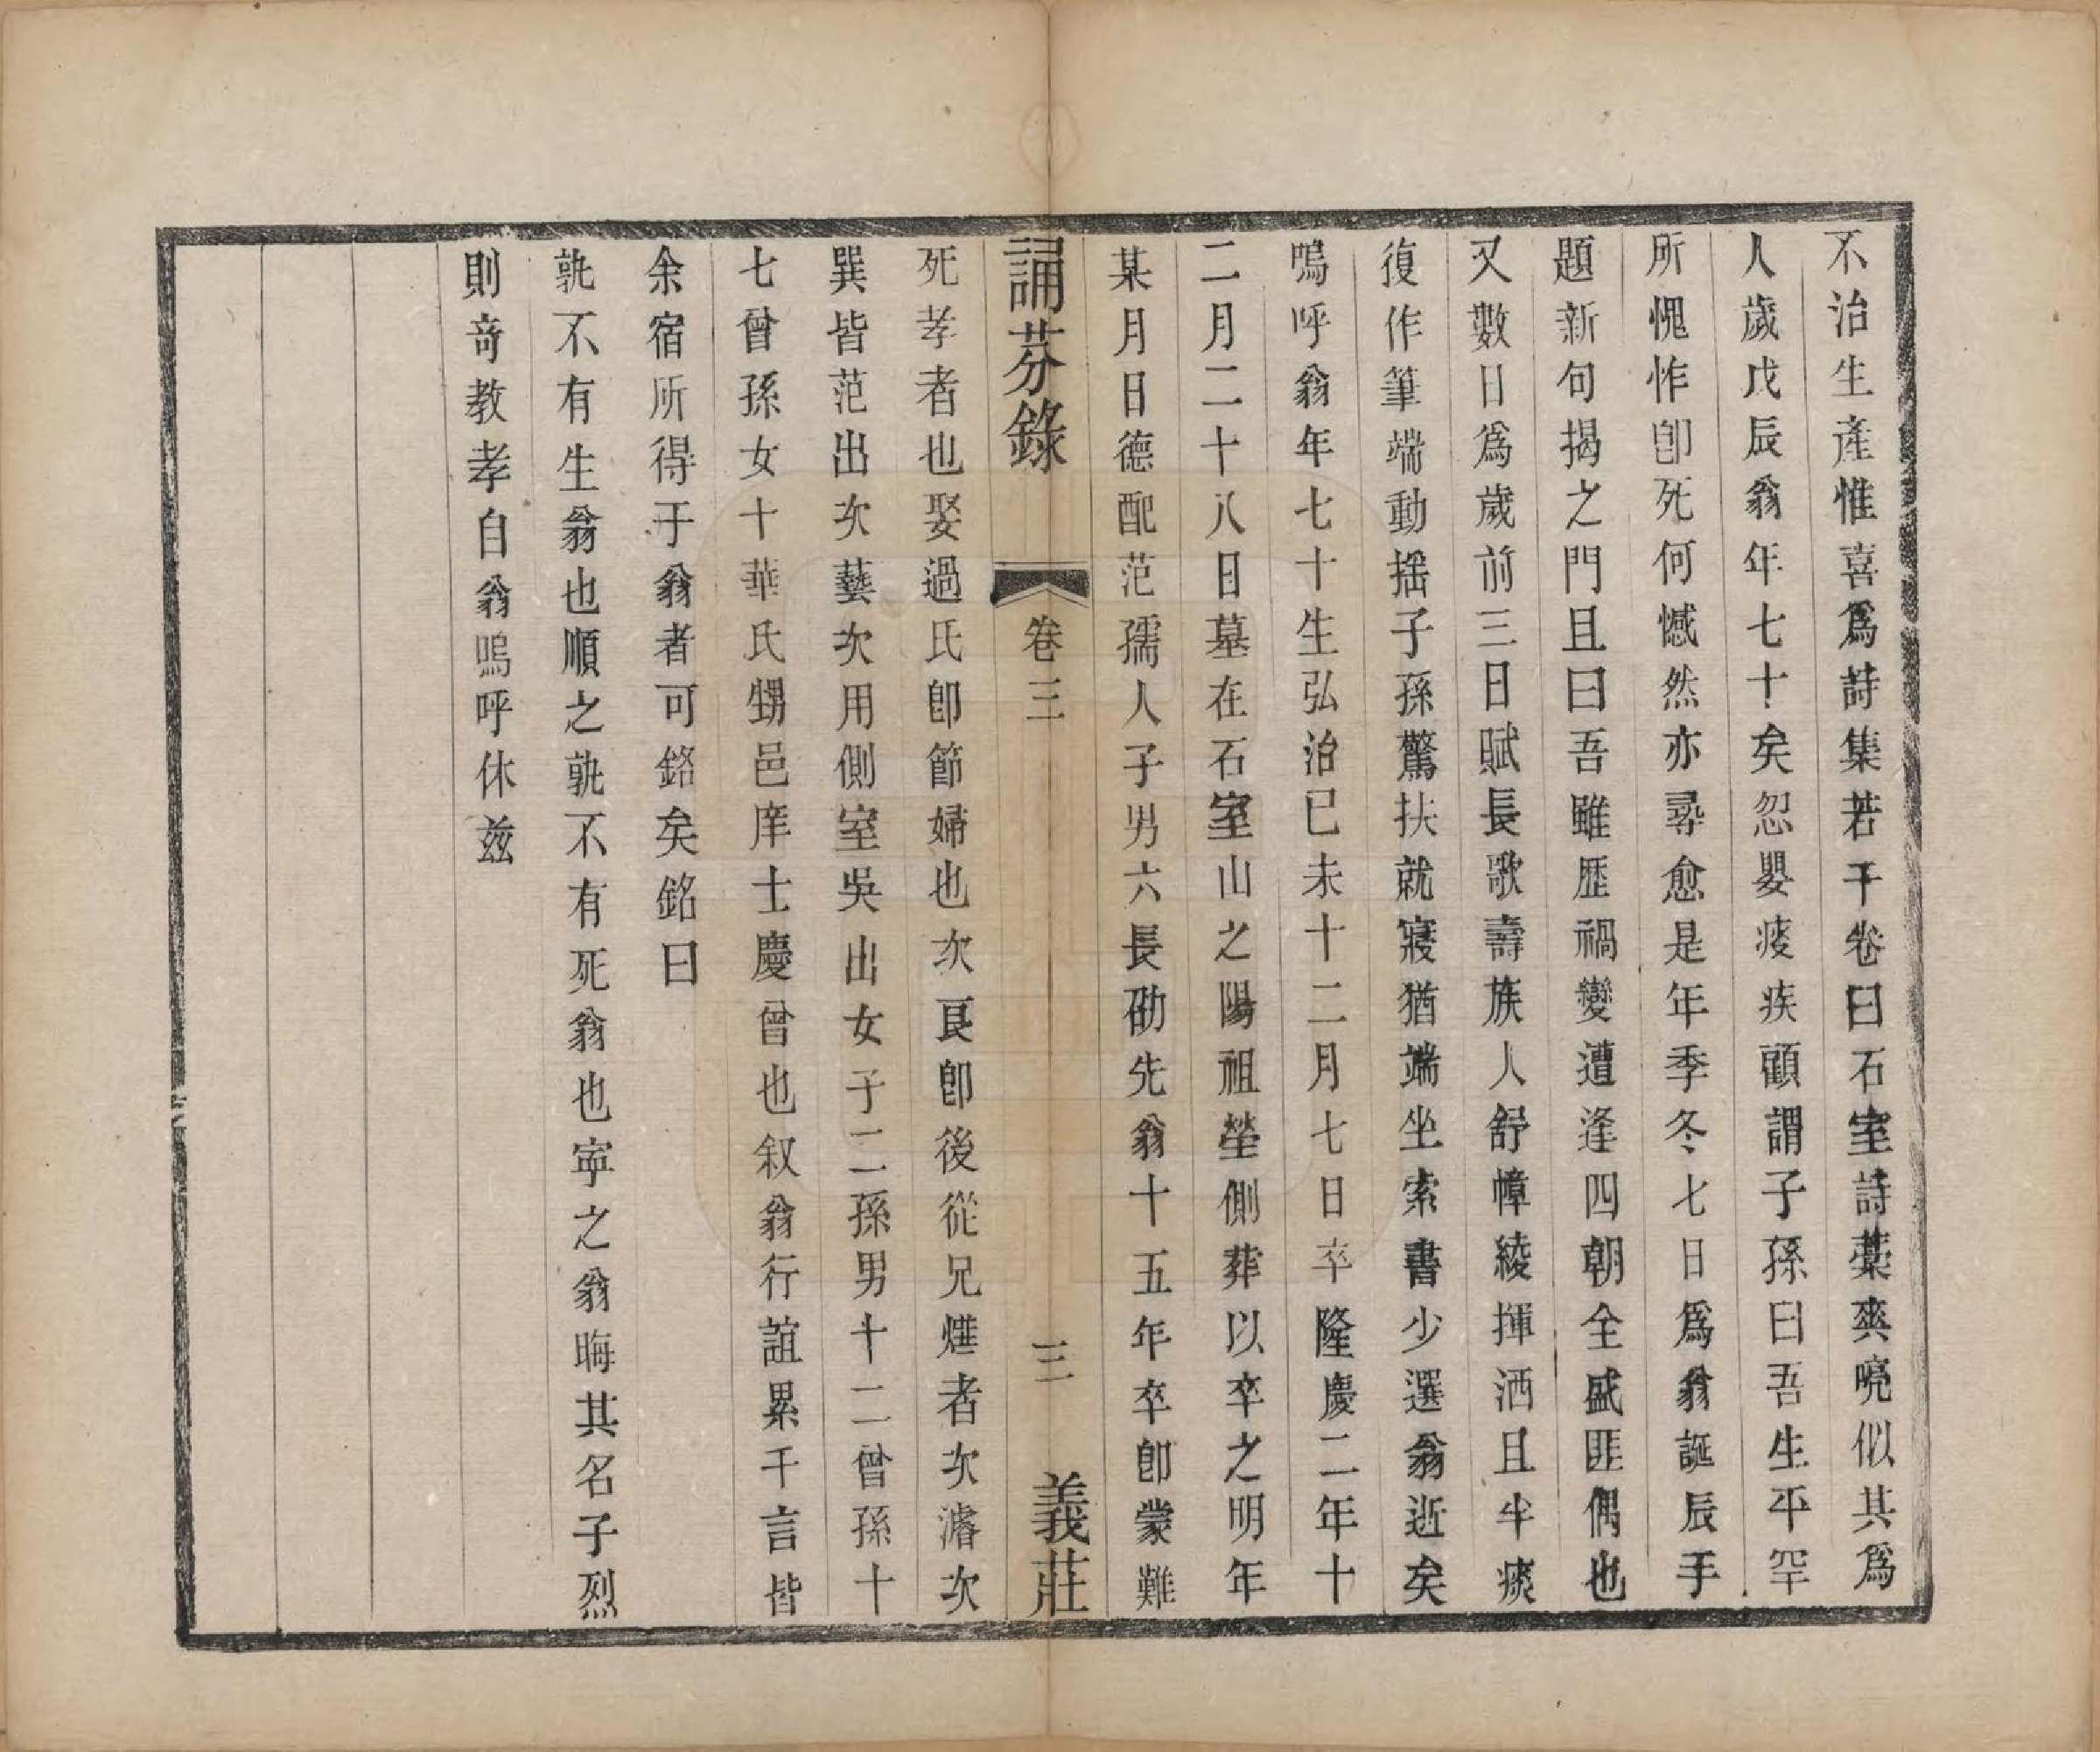 不治生產惟喜爲詩集若干卷曰石室詩藁爽喨似其爲
人歲戊辰翁年七十矣忽嬰痰疾顧謂子孫曰吾生平罕
所愧怍卽死何憾然亦尋愈是年季冬七日爲翁誕辰手
題新句揭之門且曰吾雖歷禍變遭逢四朝全盛匪偶也
又數日爲歲前三日賦長歌壽族人舒幛綾揮洒且半痰
復作筆端動搖子孫驚扶就寢猶端坐索書少選翁逝矣
嗚呼翁年七十生弘治已未十二月七日卒隆慶二年十
二月二十八日墓在石室山之陽祖塋側葬以卒之明年
某月日德配范孺人子男六長砺先翁十五年卒卽蒙難
誦芬錄 卷三 三 義莊
死孝者也娶過氏卽節婦也次㫰卽後從兄煃者次濬次
巽皆范出次藝次用側室吳出女子二孫男十二曾孫十
七曾孫女十華氏甥邑庠士慶曾也叙翁行誼累千言皆
余宿所得于翁者可銘矣銘曰
孰不有生翁也順之孰不有死翁也寧之翁晦其名子烈
則奇教孝自翁嗚呼休兹